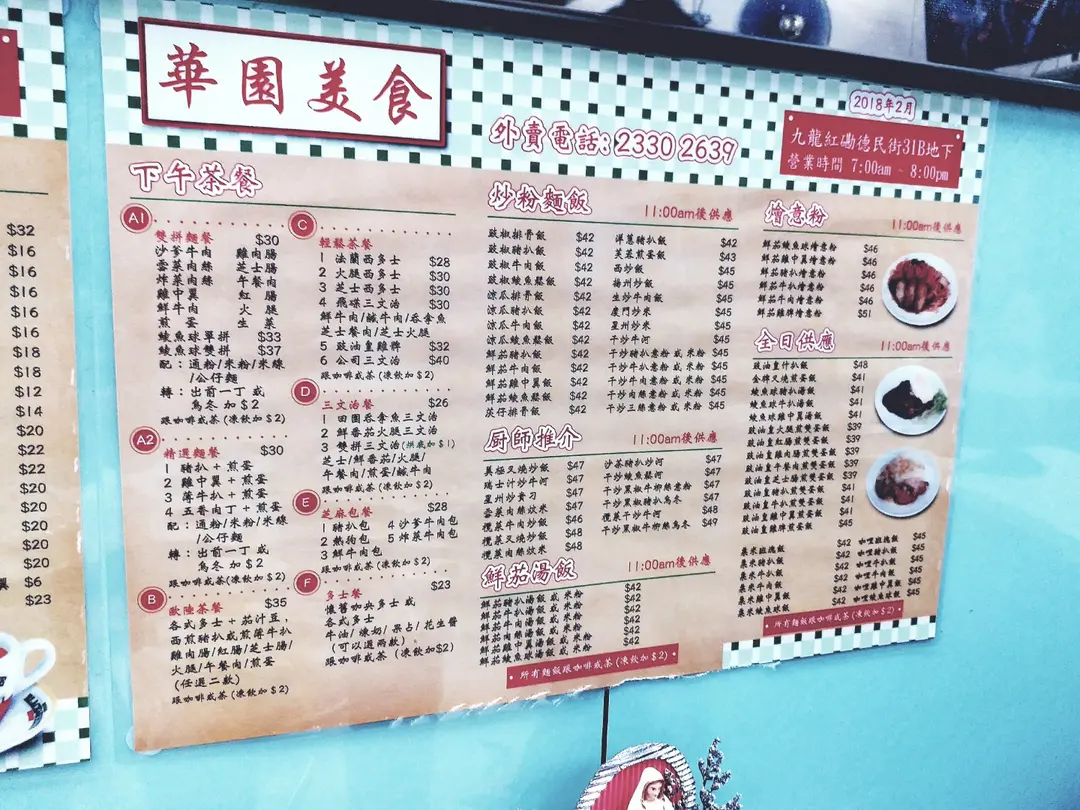 華園美食
外賣電話: 2330 2639
2018年2月
九龍紅磡德民街31B地下
營業時間 7:00am ~ 8:00pm
$32
$16
$16
$16
$16
$16
$18
$18
$12
$14
$20
$22
$22
$20
$20
$20
$20
$20
$6
$23
下午茶餐
A1
雙拼麵餐 $30
沙爹牛肉 雞肉腸
雪菜肉絲 芝士腸
炸菜肉絲 午餐肉
雞中翼 紅腸
鮮牛肉 火腿
煎蛋 生菜
鯪魚球單拼 $33
鯪魚球雙拼 $37
配:通粉/米粉/米線
/公仔麵
轉:出前一丁 或
烏冬 加$2
跟咖啡或茶(凍飲加$2)
A2
精選麵餐 $30
1 豬扒+煎蛋
2 雞中翼+煎蛋
3 薄牛扒+煎蛋
4 五香肉丁+煎蛋
配:通粉/米粉/米線
/公仔麵
轉:出前一丁 或
烏冬 加$2
跟咖啡或茶(凍飲加$2)
B
歐陸茶餐 $35
各式多士+茄汁豆,
西煎豬扒或煎薄牛扒
雞肉腸/紅腸/芝士腸/
火腿/午餐肉/煎蛋
(任選二款)
跟咖啡或茶(凍飲加$2)
C
輕鬆茶餐
1 法蘭西多士 $28
2 火腿西多士 $30
3 芝士西多士 $30
4 飛碟三文治 $30
鮮牛肉/鹹牛肉/吞拿魚
芝士餐肉/芝士火腿
5 豉油皇雞髀 $32
6 公司三文治 $40
跟咖啡或茶(凍飲加$2)
D
三文治餐 $26
1 田園吞拿魚三文治
2 鮮番茄火腿三文治
3 雙拼三文治(烘底加$1)
芝士/鮮番茄/火腿/
午餐肉/煎蛋/鹹牛肉
跟咖啡或茶(凍飲加$2)
E
芝麻包餐 $28
1 豬扒包 4 沙爹牛肉包
2 熱狗包 5 炸菜牛肉包
3 鮮牛肉包
跟咖啡或茶(凍飲加$2)
F
多士餐 $23
懷舊咖央多士 或
各式多士
牛油/煉奶/果占/花生醬
(可以選兩款)
跟咖啡或茶 (凍飲加$2)
炒粉麵飯 11:00am後供應
豉椒排骨飯 $42
豉椒豬扒飯 $42
豉椒牛肉飯 $42
豉椒鯪魚鬆飯 $42
涼瓜排骨飯 $42
涼瓜豬扒飯 $42
涼瓜牛肉飯 $42
涼瓜鯪魚鬆飯 $42
鮮茄豬扒飯 $42
鮮茄牛肉飯 $42
鮮茄雞中翼飯 $42
鮮茄鯪魚鬆飯 $42
茨仔排骨飯 $42
洋蔥豬扒飯 $42
芙蓉煎蛋飯 $43
西炒飯 $45
揚州炒飯 $45
生炒牛肉飯 $45
廈門炒米 $45
星州炒米 $45
干炒牛河 $45
干炒豬扒意粉 或 米粉 $45
干炒牛扒意粉 或 米粉 $45
干炒牛肉意粉 或 米粉 $45
干炒肉絲意粉 或 米粉 $45
干炒三絲意粉 或 米粉 $45
厨師推介 11:00am後供應
異極叉燒炒飯 $47
瑞士汁炒牛河 $47
星州炒貴刁 $47
雪菜肉絲炆米 $47
欖菜牛肉炒飯 $46
欖菜叉燒炒飯 $48
欖菜肉絲炆米 $48
沙茶豬扒炒河 $47
干炒鯪魚鬆河 $47
干炒黑椒牛柳絲意粉 $47
干炒黑椒豬扒烏冬 $47
欖菜干炒牛河 $48
干炒黑椒牛柳絲烏冬 $49
鮮茄湯飯 11:00am後供應
鮮茄豬扒湯飯 或 米粉 $42
鮮茄牛扒湯飯 或 米粉 $42
鮮茄牛肉湯飯 或 米粉 $42
鮮茄肉絲湯飯 或 米粉 $42
鮮茄雞中翼湯飯 或 米粉 $42
鮮茄鯪魚球湯飯 或 米粉 $42
• 所有麵飯跟咖啡或茶(凍飲加$2) •
燴意粉 11:00am後供應
鮮茄鯪魚球燴意粉 $46
鮮茄雞中翼燴意粉 $46
鮮茄豬扒燴意粉 $46
鮮茄牛扒燴意粉 $46
鮮茄牛肉燴意粉 $46
鮮茄雞髀燴意粉 $51
全日供應 11:00am後供應
豉油皇什扒飯 $48
金牌叉燒煎蛋飯 $41
鯪魚球豬扒湯飯 $41
鯪魚球牛扒湯飯 $41
鯪魚球雞中翼湯飯 $41
豉油皇火腿煎雙蛋飯 $39
豉油皇紅腸煎雙蛋飯 $39
豉油皇雞肉腸煎雙蛋飯 $39
豉油皇午餐肉煎雙蛋飯 $39
豉油皇芝士腸煎雙蛋飯 $39
豉油皇豬扒煎雙蛋飯 $41
豉油皇牛扒煎雙蛋飯 $41
豉油皇雞中翼煎蛋飯 $41
豉油皇雞髀煎蛋飯 $45
粟米斑塊飯 $42 咖喱斑塊飯 $45
粟米豬扒飯 $42 咖喱豬扒飯 $45
粟米牛扒飯 $42 咖喱牛扒飯 $45
粟米牛肉飯 $42 咖喱牛肉飯 $45
粟米雞中翼飯 $42 咖喱雞中翼飯 $45
粟米鯪魚球飯 $42 咖喱鯪魚球飯 $45
• 所有麵飯跟咖啡或茶(凍飲加$2) •